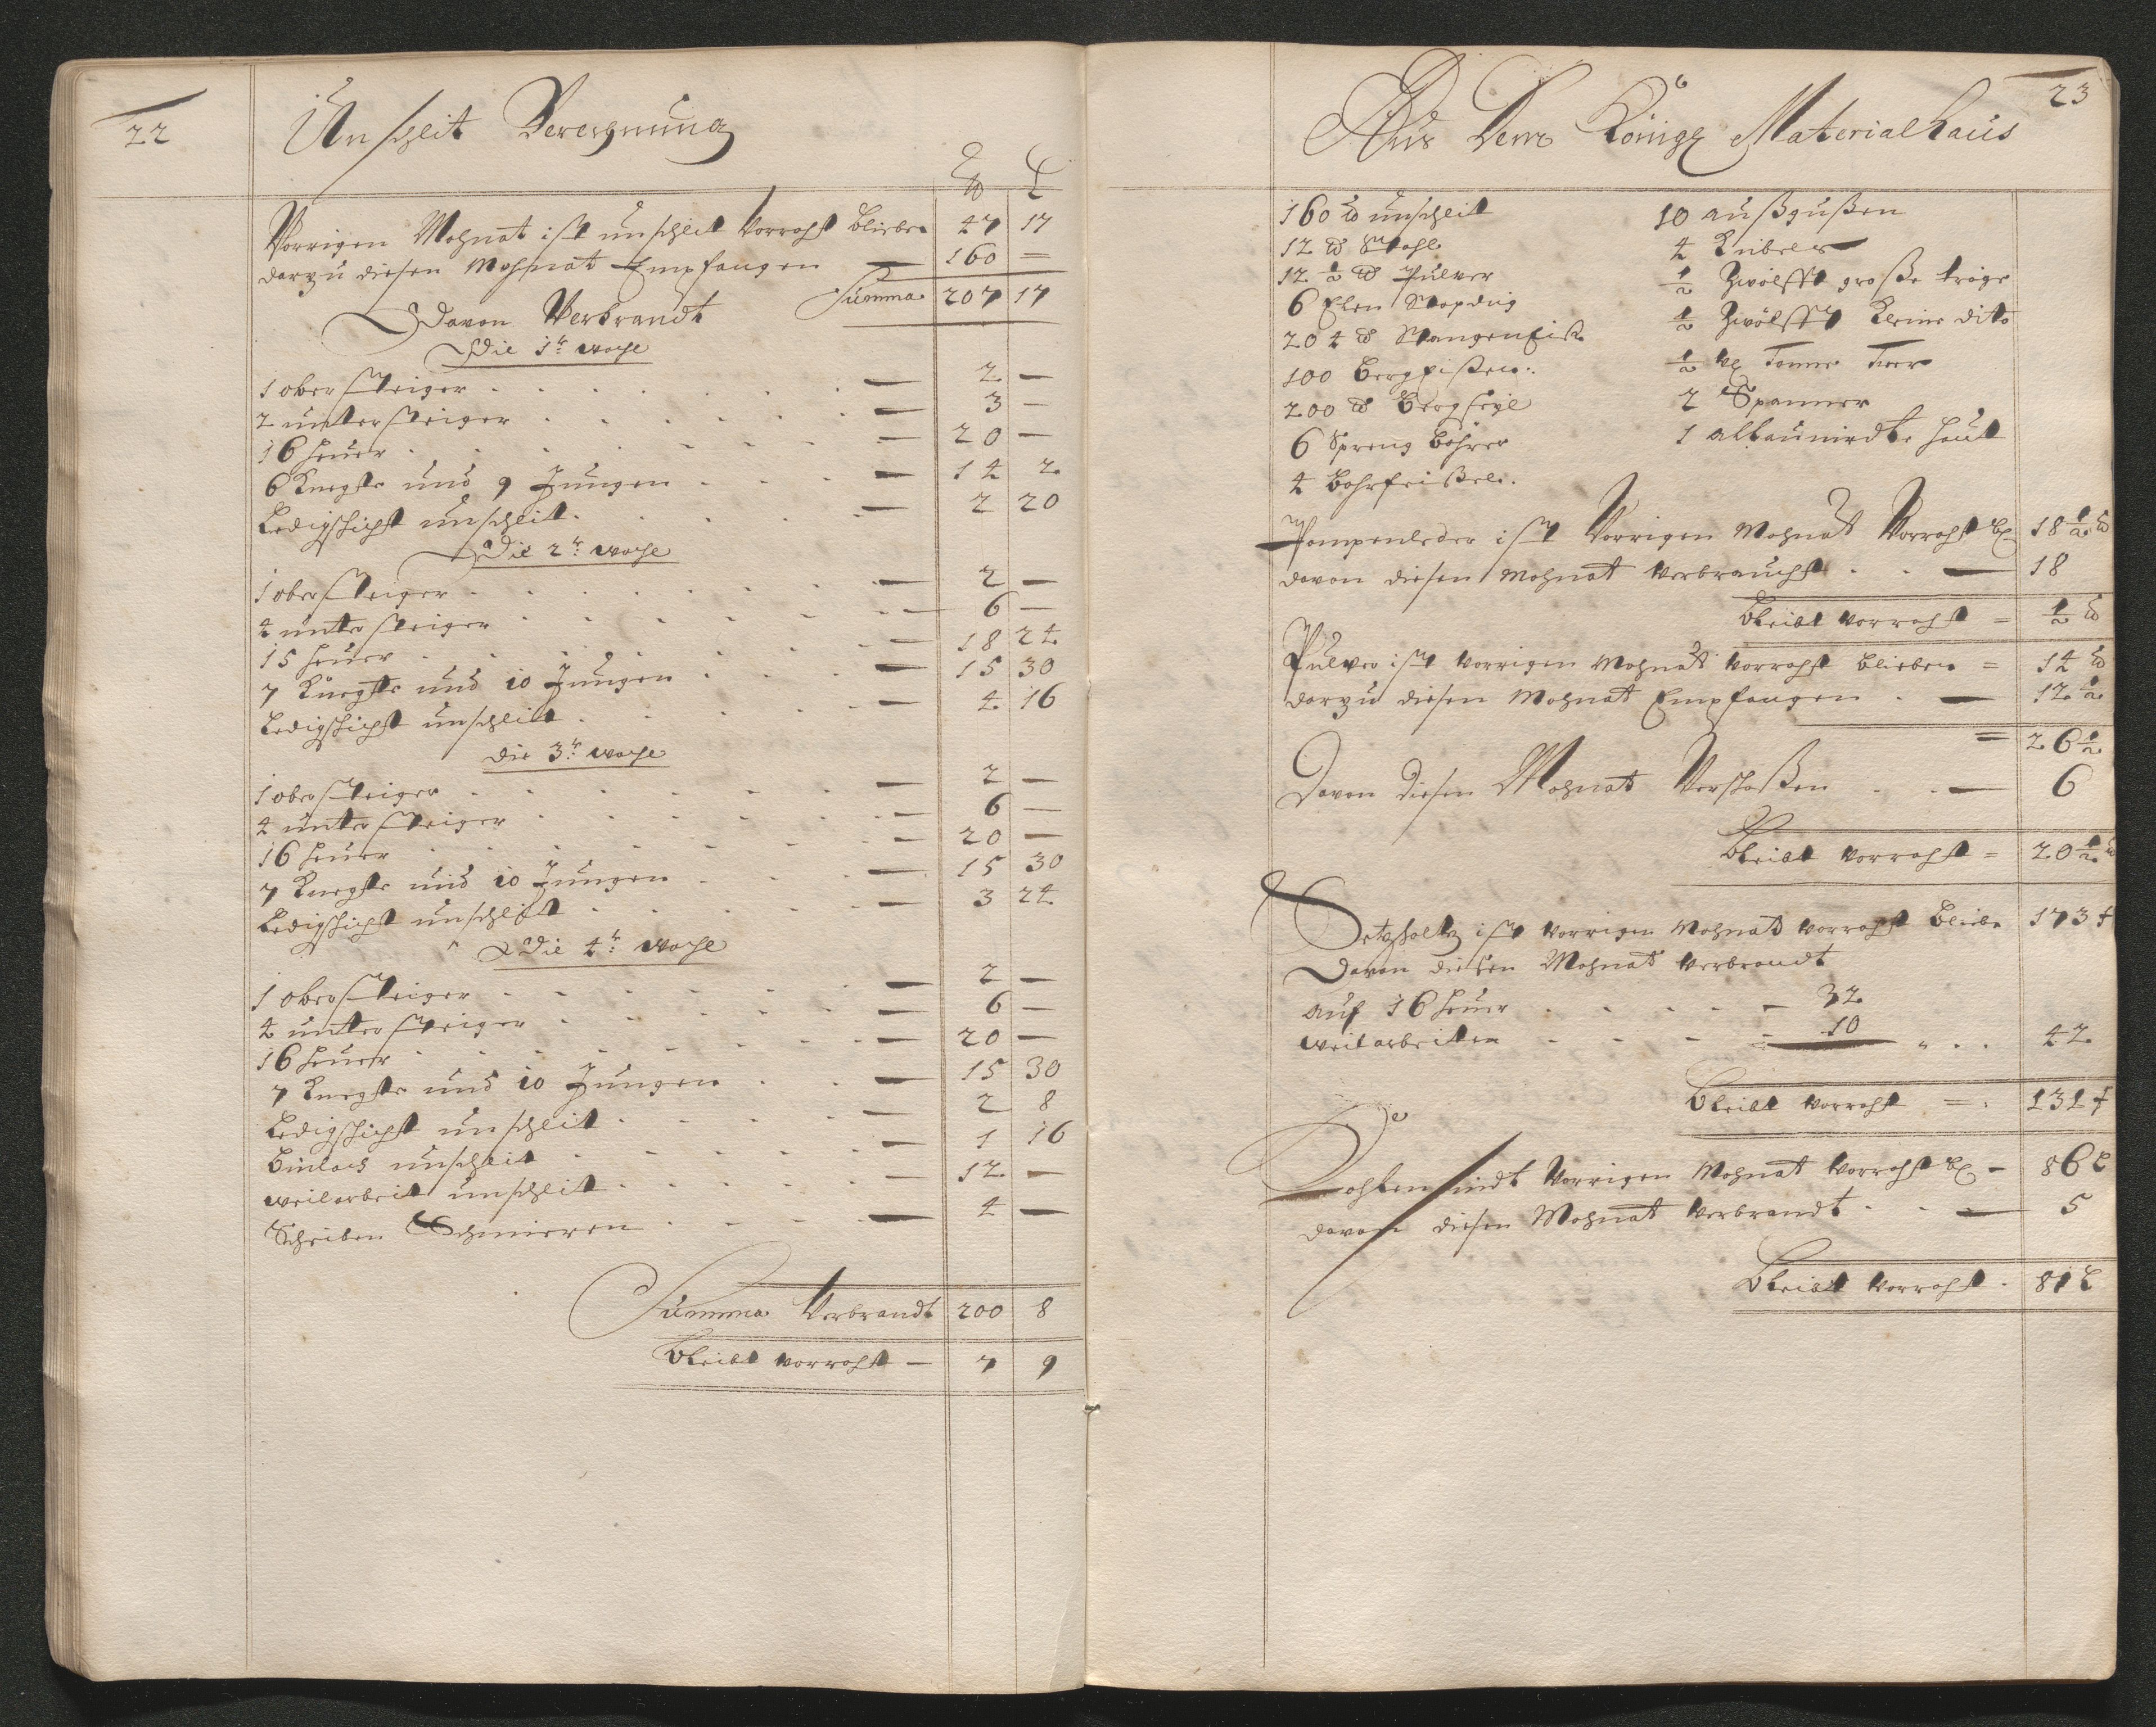 22
Unschleit Berechnung
℔ L
Vorrigen Mohnat ist unschleit Vorraht blieben 47 17
darzu diesen Mohnat Empfangen — 160 =
Summa 207 17
Davon Verbrandt
Die 1te. woche
1 obersteiger . . . — 2 —
2 untersteiger . . . — 3 —
16 heuer . . . — 20 —
6 Knegte und 9 Jungen . . . — 14 2
Ledigschicht unschleit . . . — 2 20
Die 2te. woche
1 obersteiger . . . — 2 —
4 untersteiger . . . — 6 —
15 heuer . . . — 18 24
7 Knegte und 10 Jungen . . . — 15 30
Ledigschicht unschleit . . . — 4 16
die 3te. woche
1 obersteiger . . . — 2 —
4 untersteiger . . . — 6 —
16 heuer . . . — 20 —
7 Knegte und 10 Jungen . . . — 15 30
Ledigschicht unschleit . . . — 3 24
Die 4te. woche
1 obersteiger . . . — 2 —
4 untersteiger . . . — 6 —
16 heuer . . . — 20 —
7 Knegte und 10 Jungen . . . — 15 30
Ledigschicht unschleit . . . — 2 8
unschleit . . . — 1 16
weilarbeit unschleit . . . — 12 —
Scheiben Schmieren . . . — 4 —
Summa Verbrandt 200 8
Bleibt vorraht — 7 9
23
Aus Dem Königl Materialhaus
160 ℔ unschleit
12 ℔ Stahl
12 ½ ℔ Pulver
6 Elen
204 ℔ Stangeneisen
100 Bergeisen
200 ℔ Bergseyl
6 Spreng bohrer
4
10 außgußen
4 Kübeler
½ Zwölfft große tröge
½ Zwölfft Kleine dito
½ Tonne Teer
2 Spanner
1 haut
Pompenleder ist Vorrigen Mohnat Vorraht bl 18 ½ ℔
davon diesen Mohnat verbraucht . . — 18
Bleibt vorraht = ½ ℔
Pulver ist vorrigen Mohnat vorraht blieben = 14 ℔
darzu diesen Mohnat Empfangen . — 12 ½
= 26 ½
Davon diesen Mohnat Verschoßen . . — 6
Bleibt vorraht = 20 ½ ℔
Setzholtz ist vorrigen Mohnat vorraht blieben 173 f
Davon diesen Mohnat verbrandt
auf 16 heuer . . . — 32
weilarbeiten . . . = 10 . . 42
Bleibt vorraht = 131 f
Kohlen sindt Vorrigen Mohnat vorraht bl — 86 L
davon diesen Mohnat verbrandt . . — 5
Bleibt vorraht . 81 L